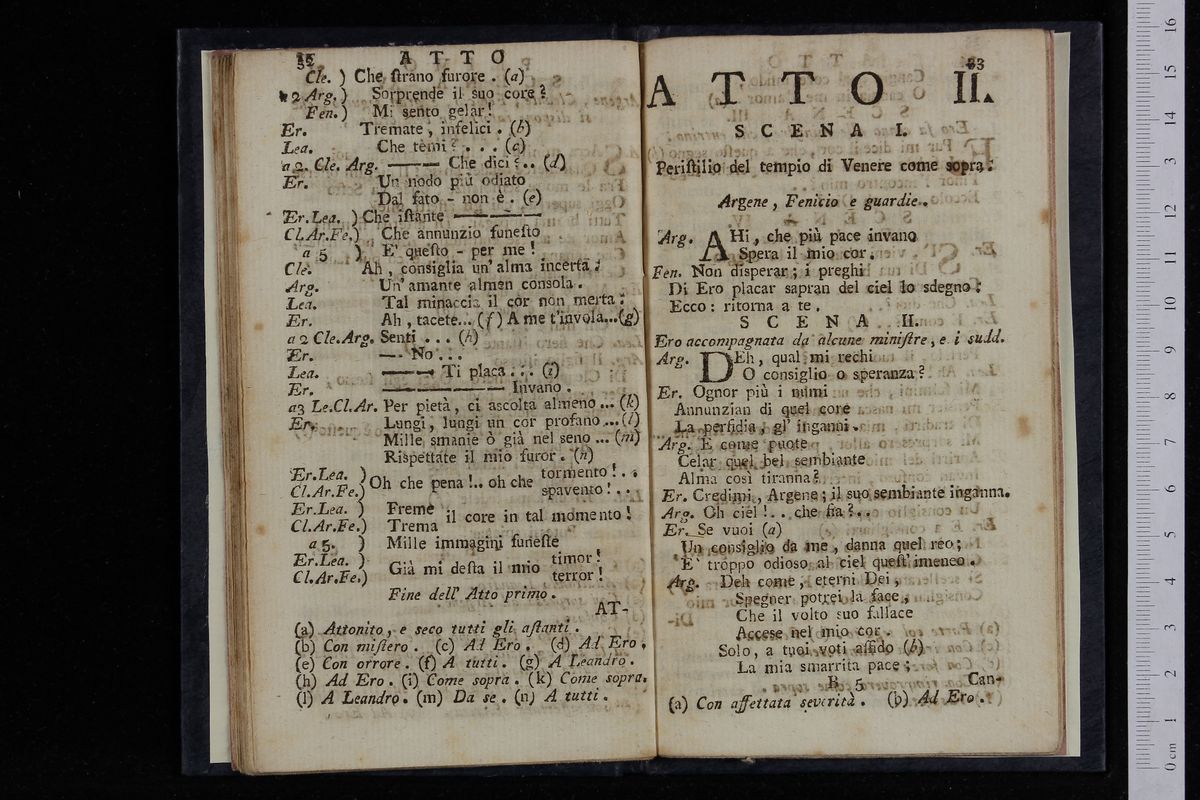 32 A T T O
Cle. ) Che ſtrano furore . (a)
a2 Arg. ) Sorprende il suo core ?
Fen. ) Mi sento gelar !
Er. Tremate , infelici . (b)
Lea. Che temi ? . . . (c)
a 2. Cle. Arg. ——— Che dici ? .. (d)
Er. Un nodo più odiato
Dal fato - non è . (e)
Er. Lea. ) Che iſtante ————
Cl.Ar.Fe.) Che annunzio funeſto
a 5 ) E' queſto - per me !
Cle. Ah , consiglia un' alma incerta :
Arg. Un' amante almen consola .
Lea. Tal minaccia il cor non merta :
Er. Ah , tacete... (f) A me t'invola...(g)
a 2 Cle.Arg. Senti . . . (h)
Er. —- No . . .
Lea. ——— Ti placa . . . (i)
Er. —————— Invano .
a3 Le.Cl.Ar. Per pietà , ci ascolta almeno ... (k)
Er. Lungi , lungi un cor profano ... (l)
Mille smanie ò già nel seno ... (m)
Rispettate il mio furor . (n)
Er.Lea. ) Oh che pena !.. oh che tormento ! . .
Cl.Ar.Fe.) spavento ! . .
Er.Lea. ) Freme il core in tal momento !
Cl.Ar.Fe.) Trema
a 5. ) Mille immagini funeſte
Er.Lea. ) Già mi deſta il mio timor !
Cl.Ar.Fe.) terror !
Fine dell' Atto primo .
AT-
(a) Attonito , e seco tutti gli aſtanti .
(b) Con miſtero . (c) Ad Ero . (d) Ad Ero .
(e) Con orrore . (f) A tutti . (g) A Leandro .
(h) Ad Ero . (i) Come sopra . (k) Come sopra .
(l) A Leandro . (m) Da se . (n) A tutti .
33
A T T O II.
S C E N A I.
Periſtilio del tempio di Venere come sopra :
Argene , Fenicio e guardie .
Arg. AHi , che più pace invano
Spera il mio cor .
Fen. Non disperar ; i preghi
Di Ero placar sapran del ciel lo sdegno :
Ecco : ritorna a te .
S C E N A II.
Ero accompagnata da alcune miniſtre , e i sudd.
Arg. DEh , qual mi rechi
O consiglio o speranza ?
Er. Ognor più i numi
Annunzian di quel core
La perfidia , gl' inganni .
Arg. E come puote
Celar quel bel sembiante
Alma così tiranna ?
Er. Credimi , Argene ; il suo sembiante inganna .
Arg. Oh ciel ! . . che fia ? . .
Er. Se vuoi (a)
Un consiglio da me , danna quel reo ;
E' troppo odioso al ciel queſt' imeneo .
Arg. Deh come , eterni Dei ,
Spegner potrei la face ,
Che il volto suo fallace
Accese nel mio cor .
Solo , a tuoi voti affido (b)
La mia smarrita pace ;
B 5 Can-
(a) Con affettata severità . (b) Ad Ero .
0 cm 1 2 3 4 5 6 7 8 9 10 11 12 13 14 15 16